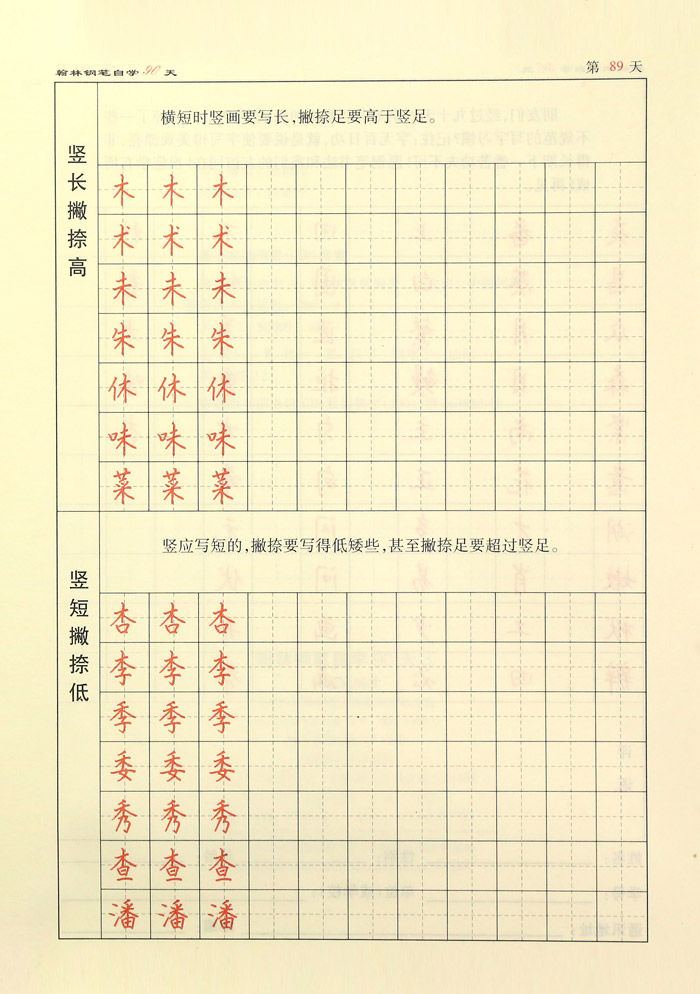 翰林钢笔自学90天
第 89 天
竖长撇捺高
横短时竖画要写长，撇捺足要高于竖足。
木 木 木
术 术 术
未 未 未
朱 朱 朱
休 休 休
味 味 味
菜 菜 菜
竖短撇捺低
竖应写短的，撇捺要写得低矮些，甚至撇捺足要超过竖足。
杏 杏 杏
李 李 李
季 季 季
委 委 委
秀 秀 秀
查 查 查
潘 潘 潘